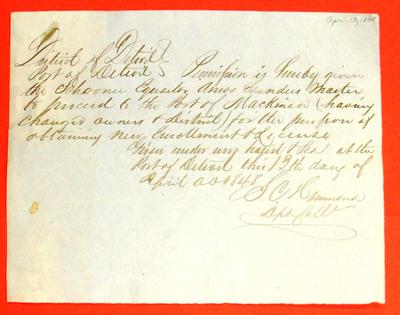 Apr. 13, 1848
District of Detroit }
Port of Detroit } Permission is hereby given
the Schooner Equator Amos Saunders Master
to proceed to the Port of Mackinac (having
changed owners & District) for the purpose of
obtaining new Enrollment & License
Given under my hand & Seal at the
Port of Detroit this 13th day of
April AD 1848.
Hammond
Dept Collr